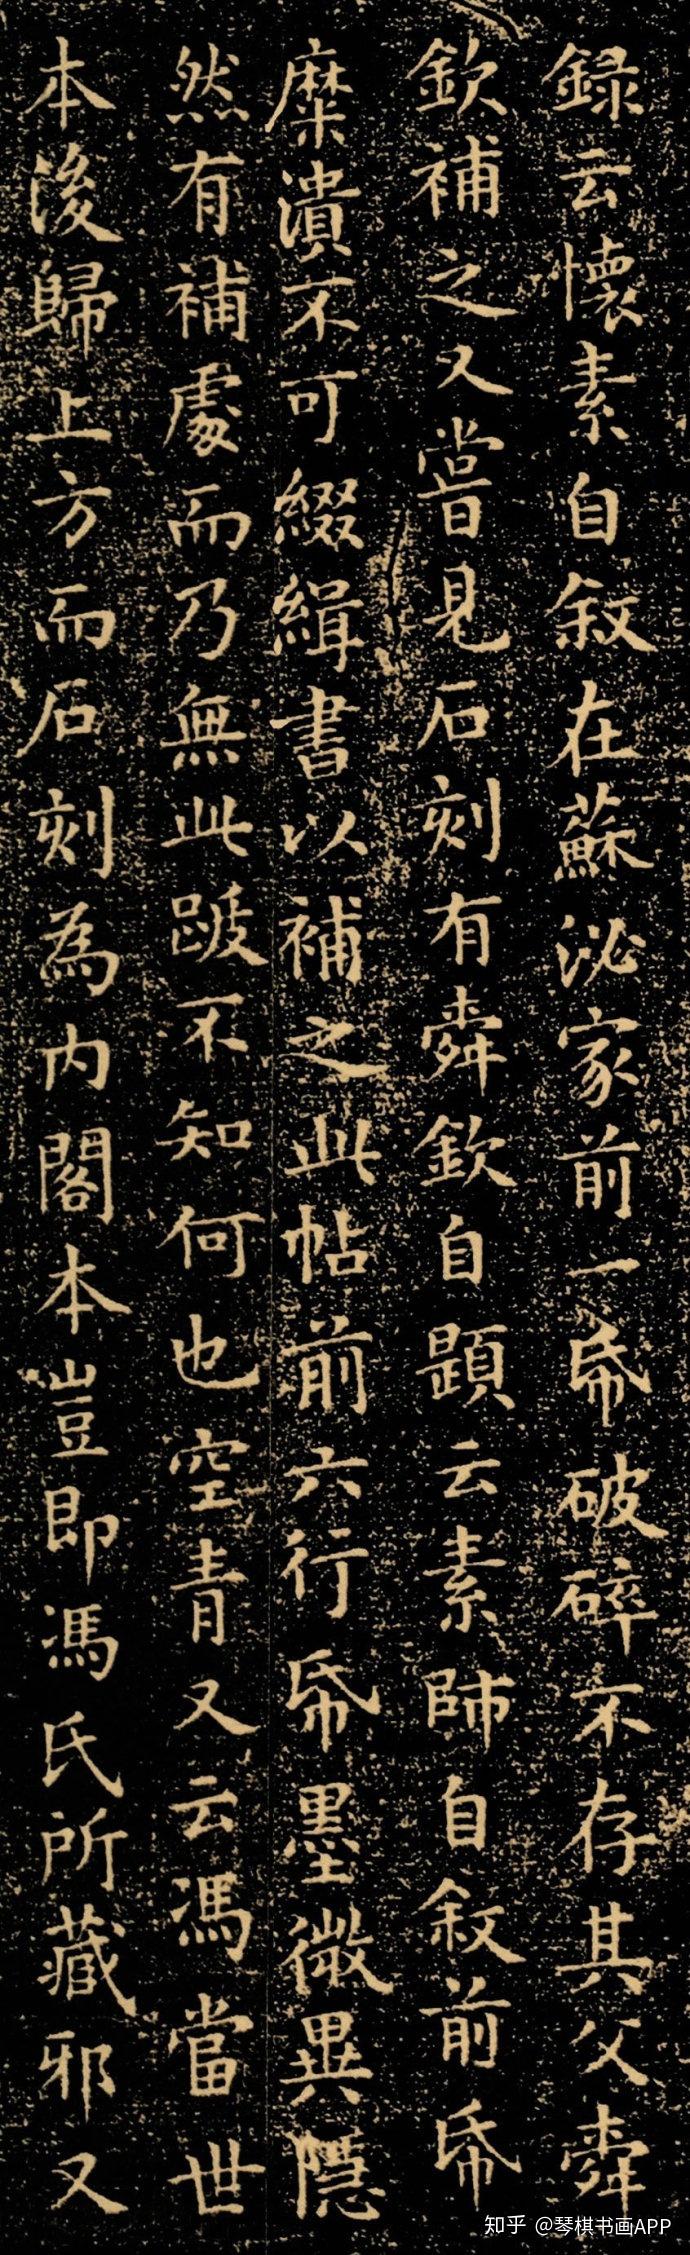 録云懐素自叙在蘇泌家前一帋破碎不存其父舜
欽補之又嘗見石刻有舜欽自題云素師自叙前帋
糜潰不可綴緝書以補之此帖前六行帋墨微異隱
然有補處而乃無此跋不知何也空青又云馮當世
本後歸上方而石刻為内閣本豈即馮氏所藏邪又
知乎 @琴棋书画APP